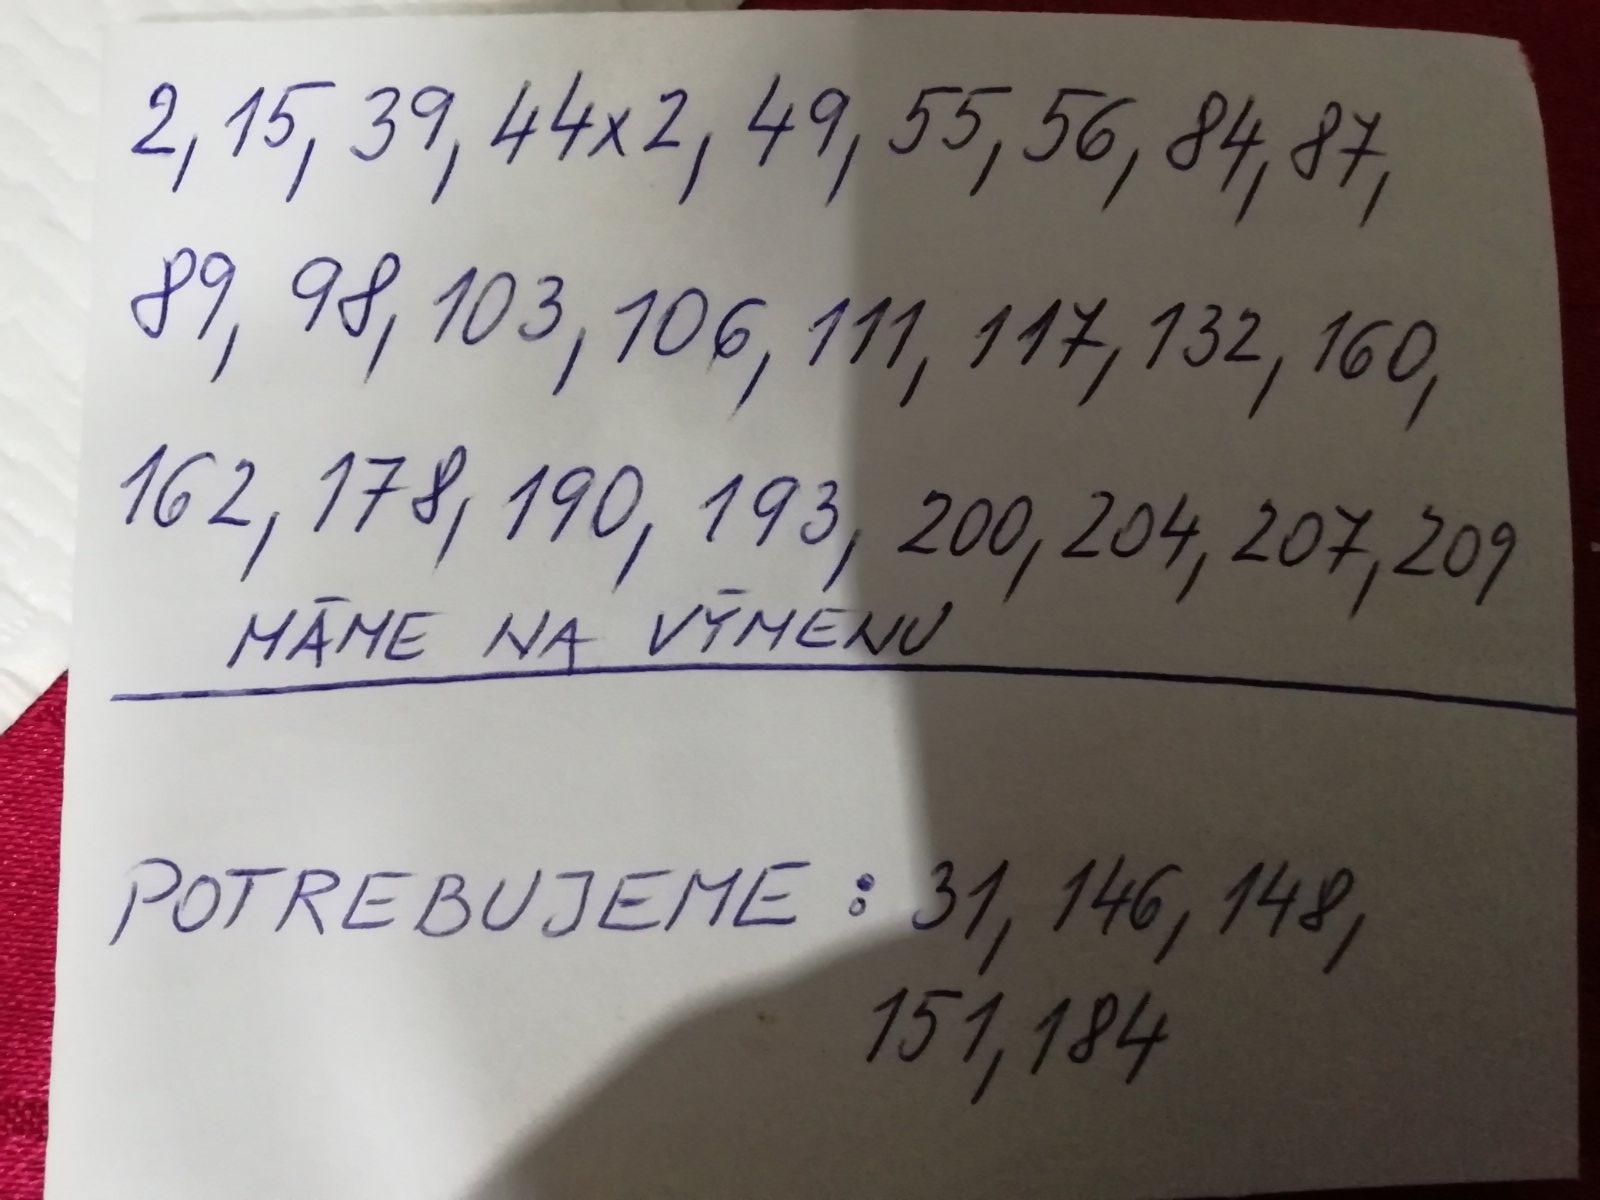 2, 15, 39, 44x2, 49, 55, 56, 84, 87,
89, 98, 103, 106, 111, 117, 132, 160,
162, 178, 190, 193, 200, 204, 207, 209
MÁME NA VÝMENU
POTREBUJEME : 31, 146, 148,
151, 184